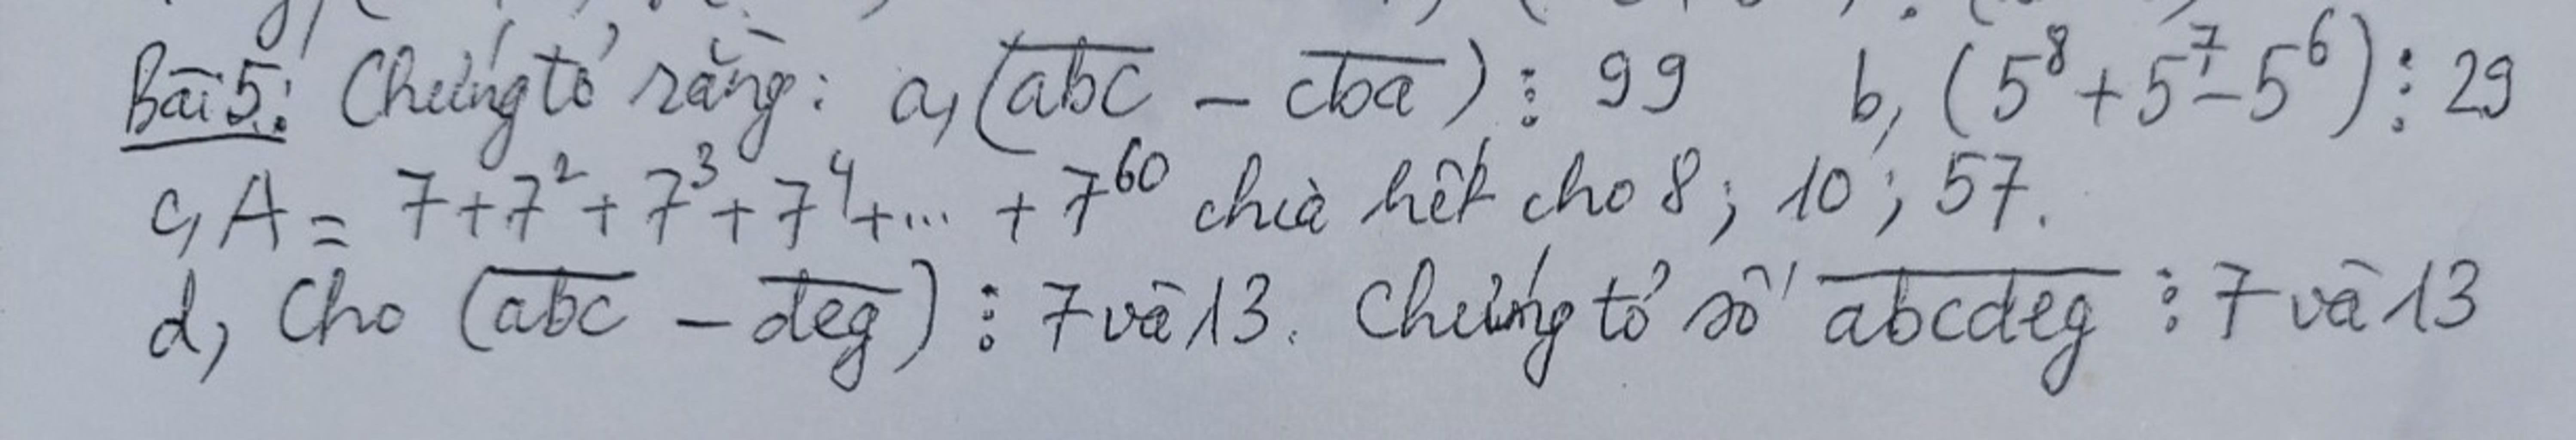 Bài 5: Chứng tỏ rằng: a, (\overline{abc} - \overline{cba}) ⋮ 99 b, (5⁸ + 5⁷ - 5⁶) ⋮ 29
c, A = 7 + 7² + 7³ + 7⁴ + ... + 7⁶⁰ chia hết cho 8; 10; 57.
d, Cho (\overline{abc} - \overline{deg}) ⋮ 7 và 13. Chứng tỏ số \overline{abcdeg} ⋮ 7 và 13